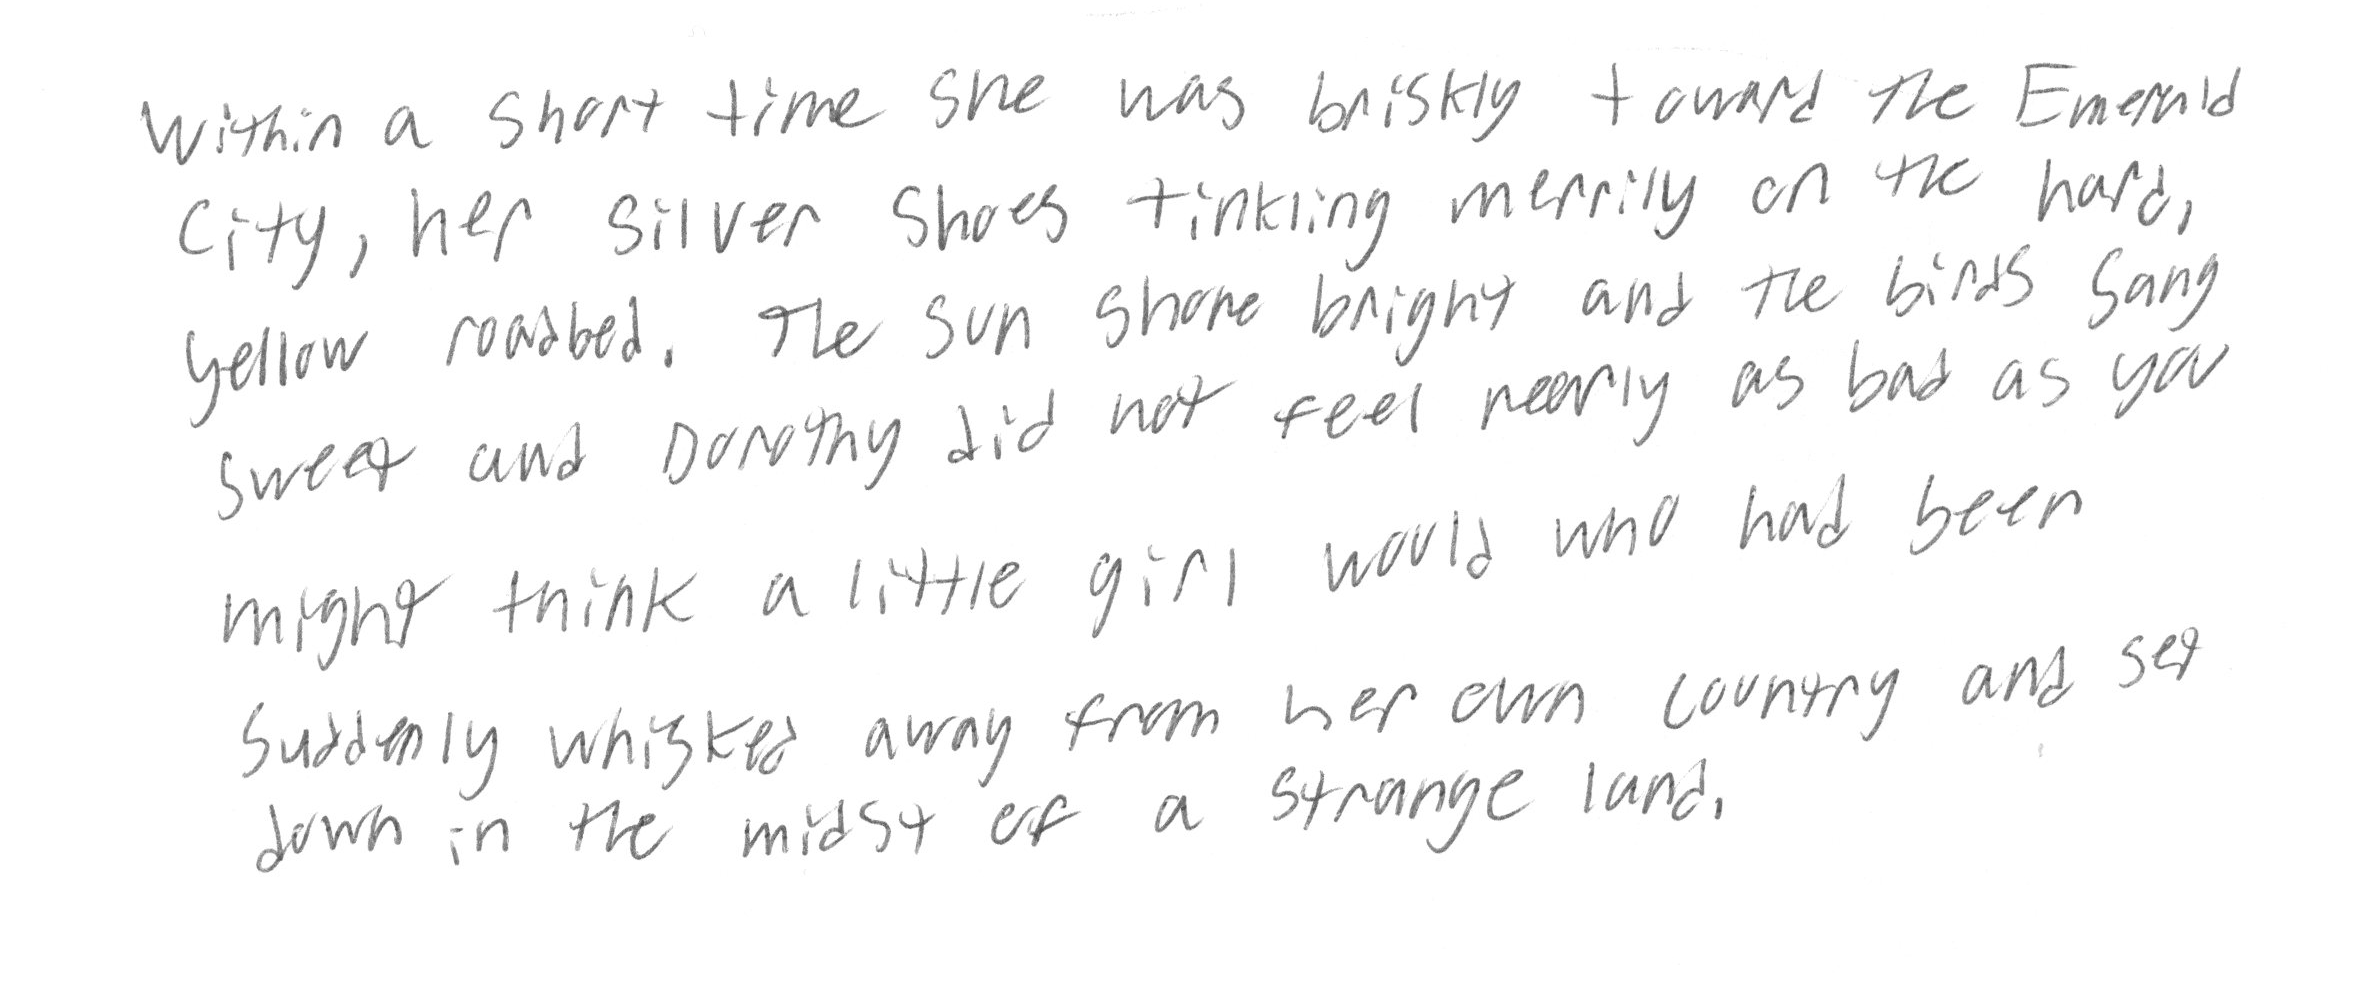 Within a short time she was briskly toward the Emerald
City, her silver shoes tinkling merrily on the hard,
yellow roadbed. The sun shone bright and the birds sang
sweet and Dorothy did not feel nearly as bad as you
might think a little girl would who had been
suddenly whisked away from her own country and set
down in the midst of a strange land.